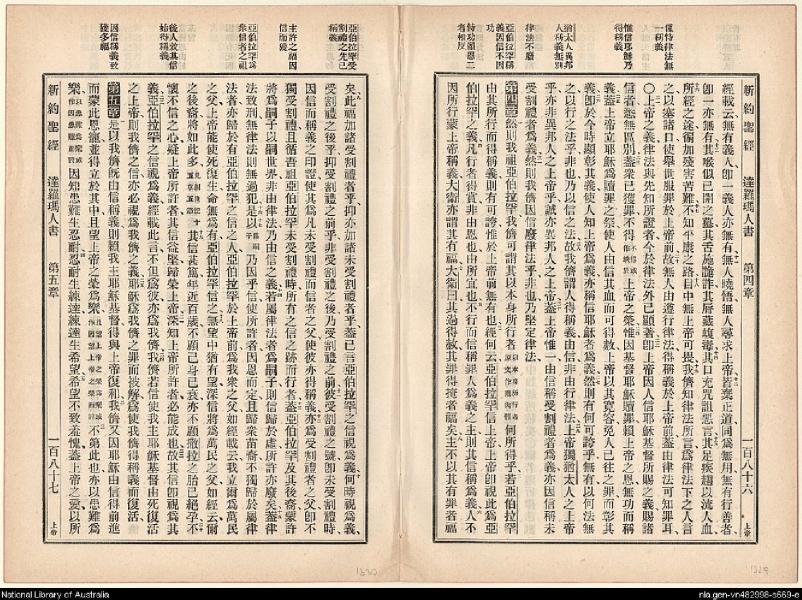 新約聖經 達羅瑪人書 第四章 一百八十六 上帝
僅恃律法無一稱義
惟信耶穌乃得稱義
猶太人異邦人稱義無別
律法不廢
亞伯拉罕稱義因信不因功
經載云無有義人卽一義人亦無有無人曉悟無人尋求上帝若輩正道同爲無用無有行善者
卽一亦無有其喉似已開之墓其舌施詭詐其唇藏蝮毒其口充咒詛惡言其足疾趨以流人血
所經之途徧加殘害苦難不知平康之路目中無上帝可畏我儕知律法所言爲律法下之人言
之以塞諸口使舉世服罪於上帝前故無人由遵行律法得稱義於上帝前蓋由律法可知罪耳
〇上帝之義律法與先知所證者今於律法外已顯著卽上帝因人信耶穌基督所賜之義賜諸
信者並無區別蓋衆已獲罪不得上帝之榮惟因基督耶穌贖罪賴上帝之恩無功而稱
義蓋上帝立耶穌爲贖罪之祭使人由信其血而可得赦上帝以其寬容免人已往之罪而彰其
義卽於今時顯彰其義使人知上帝爲義亦稱信耶穌者爲義然則有何可誇乎無有以何法無
之以行之法乎非也乃以信之法故我儕謂人得稱義由信非由行律法上帝獨猶太人之上帝
乎亦非異邦人之上帝乎誠亦異邦人之上帝蓋上帝惟一由信稱受割禮者爲義亦因信稱未
受割禮者爲義然則我儕因信廢律法乎非也乃堅定律法
第四章然則我祖亞伯拉罕我儕可謂其以本身所行者何所得乎若亞伯拉罕
由其所行而得稱義則有可誇惟於上帝前無有也經何云亞伯拉罕信上帝上帝卽視此爲亞
伯拉罕之義凡行者得賞非由恩也由所宜也不行而信稱罪人爲義之主則其信稱爲義人不
因所行蒙上帝稱義大衛亦謂其有福大衛曰其過得赦其罪得掩者福矣主不以其有罪者福
亞伯拉罕受割禮之先已稱義
主許之福因信而受
亞伯拉罕爲衆信者之祖
後人效其信始得稱義
因信稱義致獲多福
矣此福加諸受割禮者乎抑亦加諸未受割禮者乎蓋已言亞伯拉罕之信視爲義何時視爲義
受割禮之後乎抑受割禮之前乎非受割禮之後乃受割禮之前彼受割禮之號卽未受割禮時
因信而稱義之印證使其爲凡未受割禮而信者之父使彼亦得稱義亦爲受割禮者之父卽不
獨受割禮且循吾祖亞伯拉罕未受割禮時所有之信之跡而行者蓋亞伯拉罕及其後裔蒙許
將爲嗣子以嗣世界非由律法乃由信之義若屬律法者爲嗣子則信歸於虛所許亦廢矣蓋律
法致刑無律法則無過犯是以乃因乎信使所許者因恩而定且歸衆苗裔不獨歸於屬律
法者亦歸於有亞伯拉罕之信之人亞伯拉罕於上帝前爲我衆之父如經載云我立爾爲萬民
之父上帝能使死復生命無爲有亞伯拉罕信之無望中猶有望深信將爲萬民之父如經云爾
之後裔將如此多其信甚篤年近百歲不顧己身已衰亦不顧撒拉之胎已絕孕不
懷不信之心疑上帝所許者其信益堅歸榮上帝深知上帝所許者必能成也故其信卽視爲其
義亞伯拉罕之信視爲義經載此言不但爲彼亦爲我儕我儕若信使我主耶穌基督由死復活
之上帝則我儕之信亦必視爲我儕之義耶穌爲我儕之罪而被解爲使我儕得稱義而復活
第五章是以我儕旣由信稱義則賴我主耶穌基督得與上帝復和我儕又因耶穌由信得前進
而蒙此恩寵並得立於其中且望上帝之榮爲樂不第此也亦以患難爲
樂因知患難生忍耐忍耐生練達練達生希望希望不致羞愧蓋上帝之愛以所
新約聖經 達羅瑪人書 第五章 一百八十七 上帝
National Library of Australia
nla.gen-vn482998-s669-e